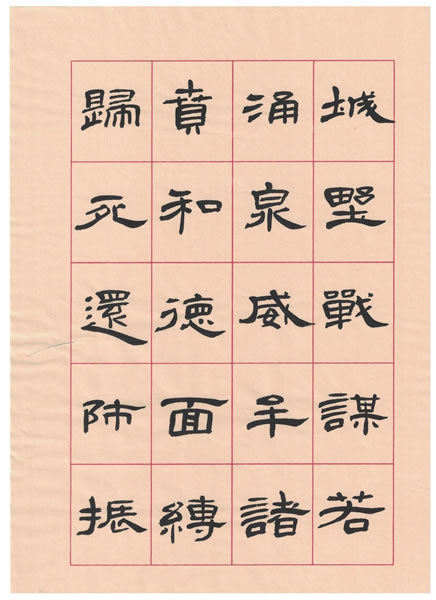 城墅戰謀若
涌泉威牟諸
賁和德面縛
歸死還師振